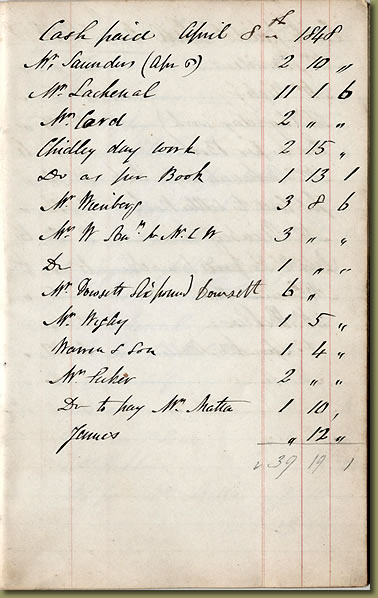 Cash paid April 8th 1848
Mr Saunders (Apr 5) 2 10 "
Mr Lachenal 11 1 6
Mr Card 2 " "
Chidley day work 2 15 "
Do as per Book 1 13 1
Mr Wienberg 3 8 6
Mr W 3 " "
Do 1 " "
Mr Dowsett Six pound) Dowsett 6 "
Mr Wigby 1 5 "
Warren & Son 1 4 "
Mr 2 " "
Do to pay Mr Matta 1 10 ,
James " 12 "
39 19 1